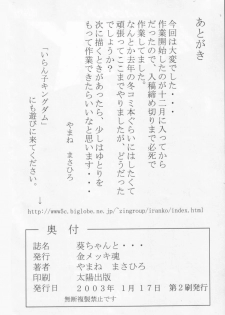 あとがき
今回は大変でした・・・
作業開始したのが十二月に入ってから
だったので、入稿締め切りまで必死で
作業してました。
なんとか去年の冬コミ本ぐらいにはしたくて
頑張ってここまでやりましたが、どうだった
でしょうか？
次に描くときがあったら、少しはゆとりを
もって作業できたらいいなと思います・・・
やまね　まさひろ
「いらん子キングダム」
にも遊びに来てください。
↓
http://www5c.biglobe.ne.jp/~zingroup/iranko/index.html
奥　付
誌名　葵ちゃんと・・・
発行　金メッキ魂
著者　やまね　まさひろ
印刷　太陽出版
発行日　２００３年　１月１７日　第２刷発行
無断複写・転載を禁じます